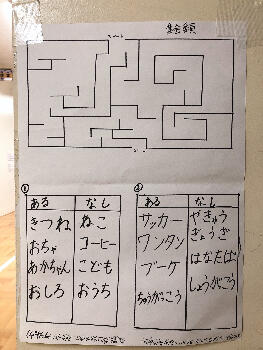 ①
ある なし
きつね ねこ
おちゃ コーヒー
あかちゃん こども
おしろ おうち
②
ある なし
サッカー やきゅう
ワンタン ぎょうざ
ブーケ はなたば
ちゅうがっこう しょうがっこう